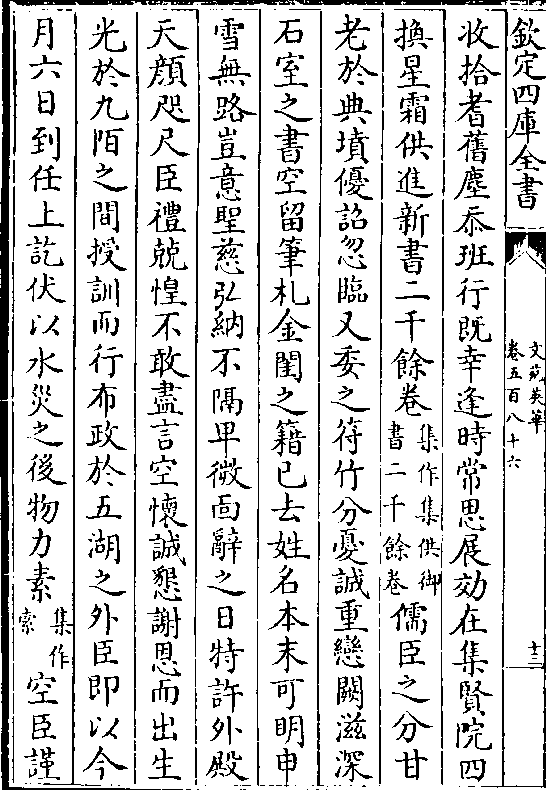 欽定四庫全書
文苑英華
卷五百八十六
十三
收拾耆舊塵忝班行既幸逢時常思展効在集賢院四
換星霜供進新書二千餘卷集作集供御書二千餘卷儒臣之分甘
老於典墳優詔忽臨又委之符竹分憂誠重戀闕滋深
石室之書空留筆札金閨之籍已去姓名本末可明申
雪無路豈意聖慈弘納不隔卑微面辭之日特許外殿
天顔咫尺臣禮兢惶不敢盡言空懷誠懇謝恩而出生
光於九陌之間授訓而行布政於五湖之外臣即以今
月六日到任上訖伏以水災之後物力素集作索空臣謹